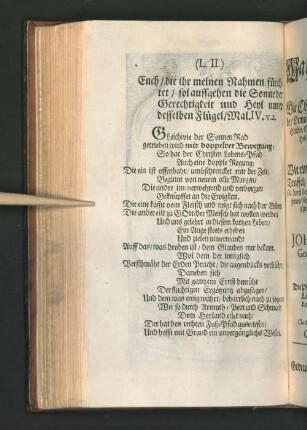 (L. II)
Euch / die ihr meinen Nahmen fürch-
tet / sol auffgehen die Sonne der
Gerechtigkeit und Heyl unter
desselben Flügel / Mal. IV. v. 2.
Gleichwie der Sonnen Rad
getrieben wird mit doppelter Bewegung;
So hat der Christen Lebens-Pfad
Auch eine doppte Regung:
Die ein ist offenbahr / umbschrencket mit der Zeit;
Beginnt von neuem alle Morgen
Die ander im̃erwehrend und verborgen
Geknüpffet an die Ewigkeit.
Die eine hafft vom Fleisch und neigt sich nach der Erden
Die ander eilt zu GOtt der Mensch hat wollen werden
Und uns gelehrt in diesem kurtzen Leben /
Ein Auge stets erheben
Und zielen unverwandt
Auff das / was droben ist / dem Glauben nur bekant.
Wol dem der inniglich
Verschmäht der Erden Pracht / die augenblicks verblüht
Daneben sich
Mit gantzem Ernst bemüht
Der flüchtigen Ergetzung abzusagen /
Und dem was ewig wehrt / beharrlich nach zu jagen
Wer so durch Armuth / Pein und Schmach
Dem Heyland eilet nach /
Der hat den rechten Fuß-Pfad auserlesen;
Und hofft mit Grund ein unvergänglichs Wesen.